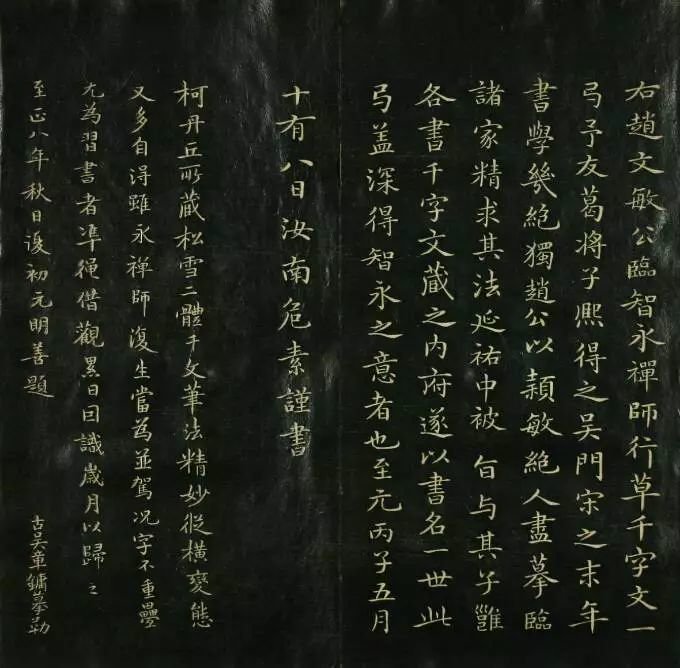 右趙文敏公臨智永禪師行草千字文一
弓予友葛將子熈得之吳門宋之末年
書學㡬絕獨趙公以頴敏絕人盡摹臨
諸家精求其法延祐中被 旨与其子雝
各書千字文蔵之内府遂以書名一世此
弓盖深得智永之意者也至元丙子五月
十有八日汝南危素謹書
柯丹丘所蔵松雪二體千文筆法精妙從橫變態
又多自得雖永禪師復生當為並駕况字不重疊
尤為習書者準繩借觀累日因識歲月以歸之
至正八年秋日復初元明善題
古吳章鏞摹勒